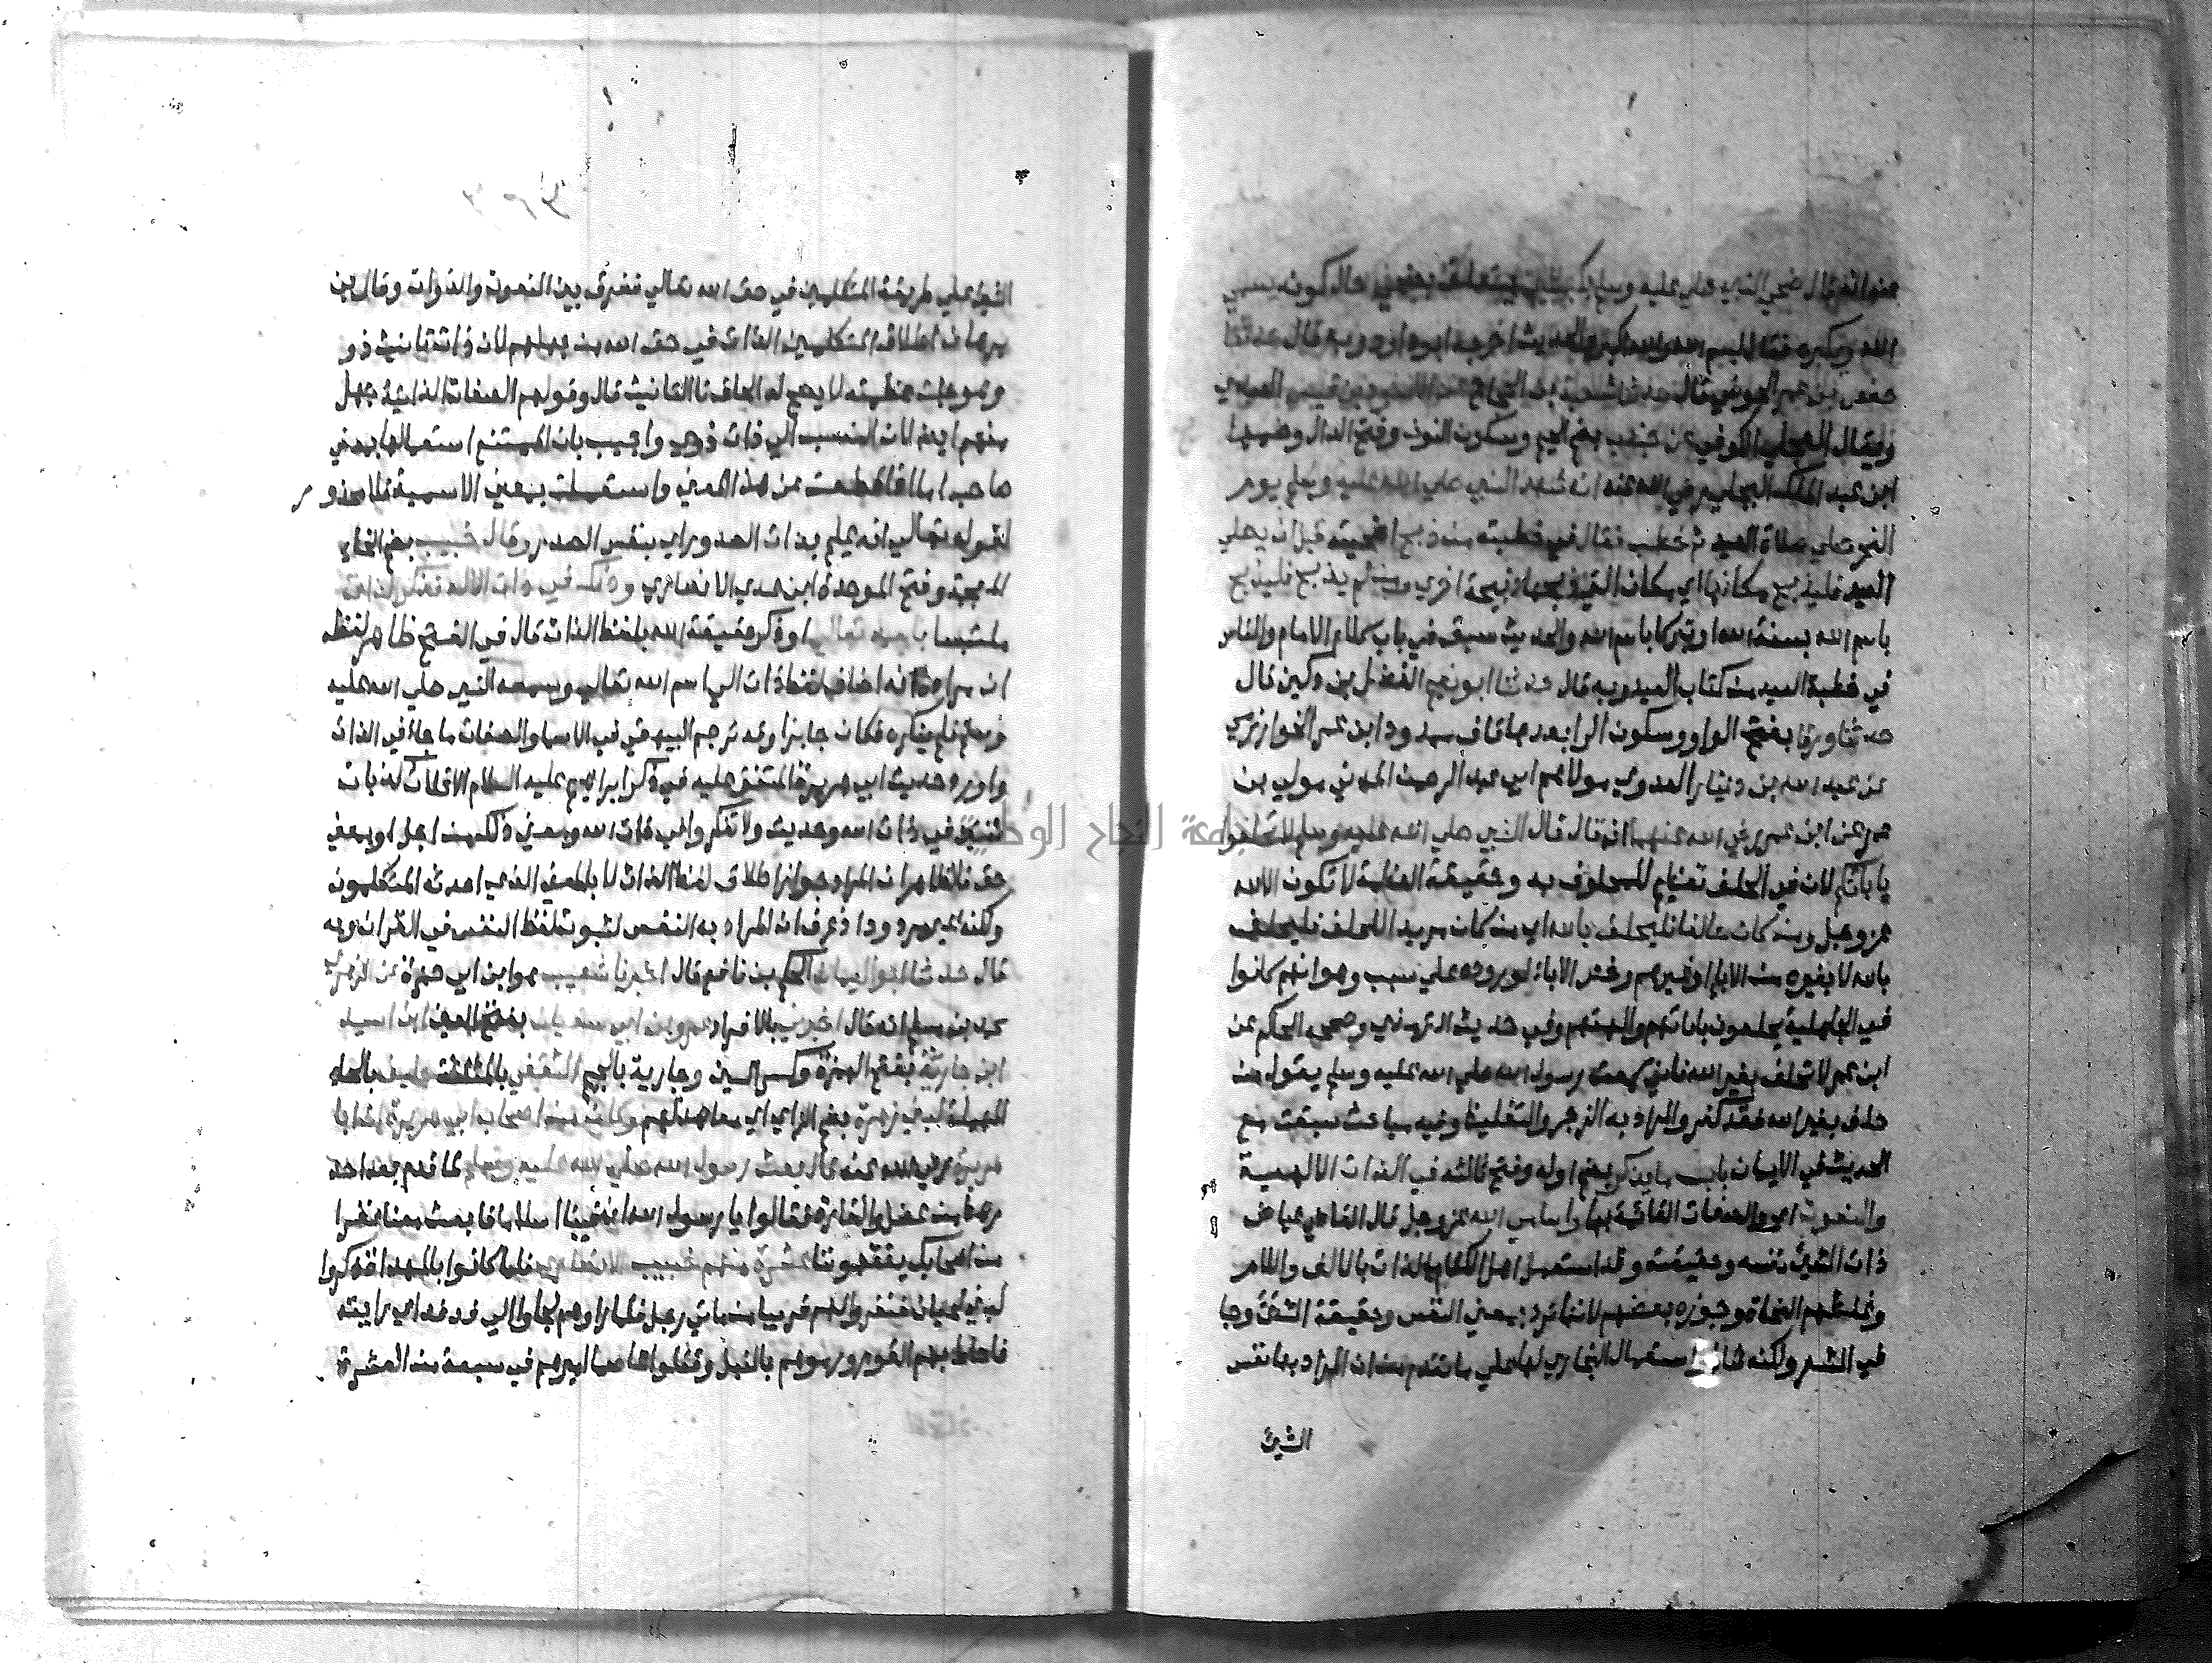 عنه انه قال ضحي النبي صلي عليه وسلم بكبشين يسمي
الله ويكبره فقال بسم الله والله اكبر والحديث اخرجه ابوداود وبه قال حدثنا
حفص بن عمر الحوضي قال حدثنا شعبة ابن الحجاج عن الاسود بن قيس العبدي
ويقال العجلي الكوفي عن جندب بضم الجيم وسكون النون وفتح الدال وضمها
ابن عبد الملك البجلي رضي الله عنه انه شهد النبي صلي الله عليه وسلم يوم
النحر صلي صلاة العيد ثم خطب فقال في خطبته من ذبح اضحيته قبل ان يصلي
العيد فليذبح مكانها اي مكان التي ذبحها ذبيحة اخري ومن لم يذبح فليذبح
باسم الله بسنة الله او تبركا باسم الله والحديث سبق في باب كلام الامام والناس
في خطبة العيد من كتاب العيد وبه قال حدثنا ابو نعيم الفضل بن دكين قال
حدثنا ورقا بفتح الواو وسكون الرا بعدها قاف ممدود ابن عمر الخوارزمي
عن عبد الله بن دينار العدوي مولاهم ابي عبد الرحمن المدني مولي بن
عمر عن ابن عمر رضي الله عنهما انه قال قال النبي صلي الله عليه وسلم لا تحلفوا
بابائكم لان في الحلف تعظيم للمحلوف به وحقيقة العظمة لا تكون الا لله
عز وجل ومن كان حالفا فليحلف بالله اي من كان مريد اللحلف فليحلف
بالله لا بغيره من الابا او غيرهم وخص الاباء لوروده علي سبب وهو انهم كانوا
في الجاهلية يحلفون باباتهم والهتهم وفي حديث الترمذي وصححه الحكم عن
ابن عمر لا تحلف بغير الله فاني سمعت رسول الله صلي الله عليه وسلم يقول من
حلف بغير الله فقد كفر والمراد به الزجر والتغليظ وفيه مباحث سبقت مع
الحديث في الايمان باب ما يذكر بضم اوله وفتح ثالثه في الذات الالهية
والنعوت اي والصفات القائمة بها واسامي الله عز وجل قال القاضي عياض
ذات الشيئ نفسه وحقيقته وقد استعمل اهل الكلام الذات بالالف واللام
وغلطهم النحاة وجوزه بعضهم لانها ترد بمعني النفس وحقيقة الشيئ وجا
في الشعر ولكنه شاذ واستعمال البخاري لها علي ما تقدم من ان المراد بها نفس
الشيئ
الشيئ علي طريقة المتكلمين في حق الله تعالي ففرق بين النعوت والذوات وقال بن
برهان اطلاق المتكلمين الذات في حق الله من جهلهم لان ذات تانيث ذو
وهو جلت عظمته لا يصح له الحاق تا التانيث قال وقولهم الصفات الذاتية جهل
منهم ايضا لان النسب الي ذات ذوي واجيب بان الممتنع استعمالها بمعني
صاحبه اما اذا قطعت عن هذا المعني واستعملت بمعني الاسمية فلا محذور
لقوله تعالي انه عليم بذات الصدور اي بنفس الصدور وقال خبيب بضم الخاء
المعجمة وفتح الموحدة ابن عدي الانصاري وذلك في ذات الاله فذكر الذات
ملتبسا باسمه تعالي او ذكر حقيقة الله بلفظ الذات قال في الفتح ظاهر لفظه
ان مراده انه اضاف لفظ ذات الي اسم الله تعالي وسمعه النبي صلي الله عليه
وسلم فلم ينكره فكان جايزا وقد ترجم البيهقي في الاسما والصفات ما جاء في الذات
واورد حديث ابي هريرة المتفق عليه في ذكر ابراهيم عليه السلام الا ثلاث كذبات
ثنتين في ذات الله وحديث ولا تفكروا في ذات الله ومعني ذلك من اجل او بمعني
حق فالظاهر ان المراد جواز اطلاق لفظ الذات لا بالمعني الذي احدثه المتكلمون
ولكنه غير مردود اذ عرف ان المراد به النفس لثبوت لفظ النفس في القران وبه
قال حدثنا ابو اليمان الحكم بن نافع قال اخبرنا شعيب هو ابن ابي حمزة عن الزهري
محمد بن مسلم انه قال اخبرني بالافراد عمرو بن ابي سفيان بفتح العين ابن اسيد
ابن جارية بفتح الهمزة وكسر السين وجارية بالجيم الثقفي بالمثلثة حليف بالحاء
المهملة لبني زهرة بضم الزاي اي معاهد لهم وكان من اصحاب ابي هريرة ان ابا
هريرة رضي الله عنه قال بعث رسول الله صلي الله عليه وسلم لما قدم بعد احد
رهط من عضل والقارة فقالوا يا رسول الله ان فينا اسلاما فابعث معنا نفرا
من اصحابك يفقهوننا عشرة منهم خبيب الانصاري فلما كانوا بالهداة ذكروا
لبني لحيان فنفروا لهم قريبا من مائي رجل فلما راوهم لجاوا الي فدفد اي رابية
فاحاط بهم القوم ورموهم بالنبل وقتلوا عاصما اميرهم في سبعة من العشرة